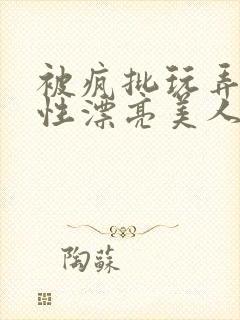 被疯批玩弄
性漂亮美人
陶蘇